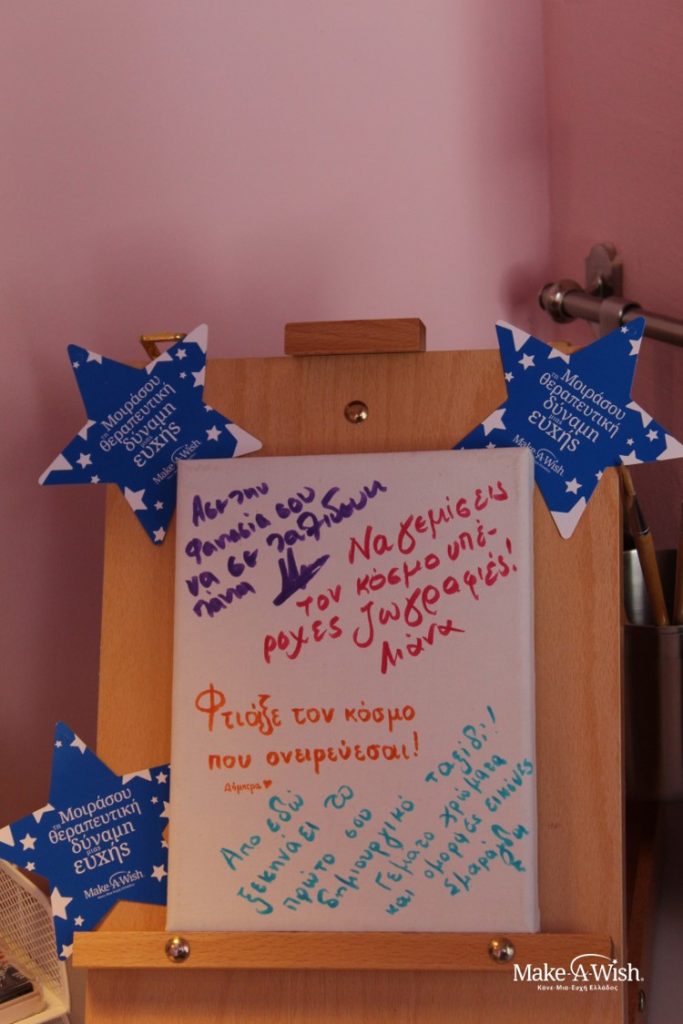 Μοιράσου
τη θεραπευτική
δύναμη
μιας
ευχής
Make-A-Wish
Μοιράσου
τη θεραπευτική
δύναμη
μιας
ευχής
Make-A-Wish
Ασε την
φαντασία σου
να σε ταξιδεύει
πάντα
Να γεμίσεις
τον κόσμο υπέ-
ροχες ζωγραφιές!
Λιάνα
Φτιάξε τον κόσμο
που ονειρεύεσαι!
Δήμητρα ♥
Απο εδώ
ξεκινάει το
πρώτο σου
δημιουργικό ταξίδι!!
Γεμάτο χρώματα
και όμορφες εικόνες
Σμαράγδα
Μοιράσου
τη θεραπευτική
δύναμη
μιας
ευχής
Make-A-Wish
Make-A-Wish®
Κάνε-Μια-Ευχή Ελλάδος